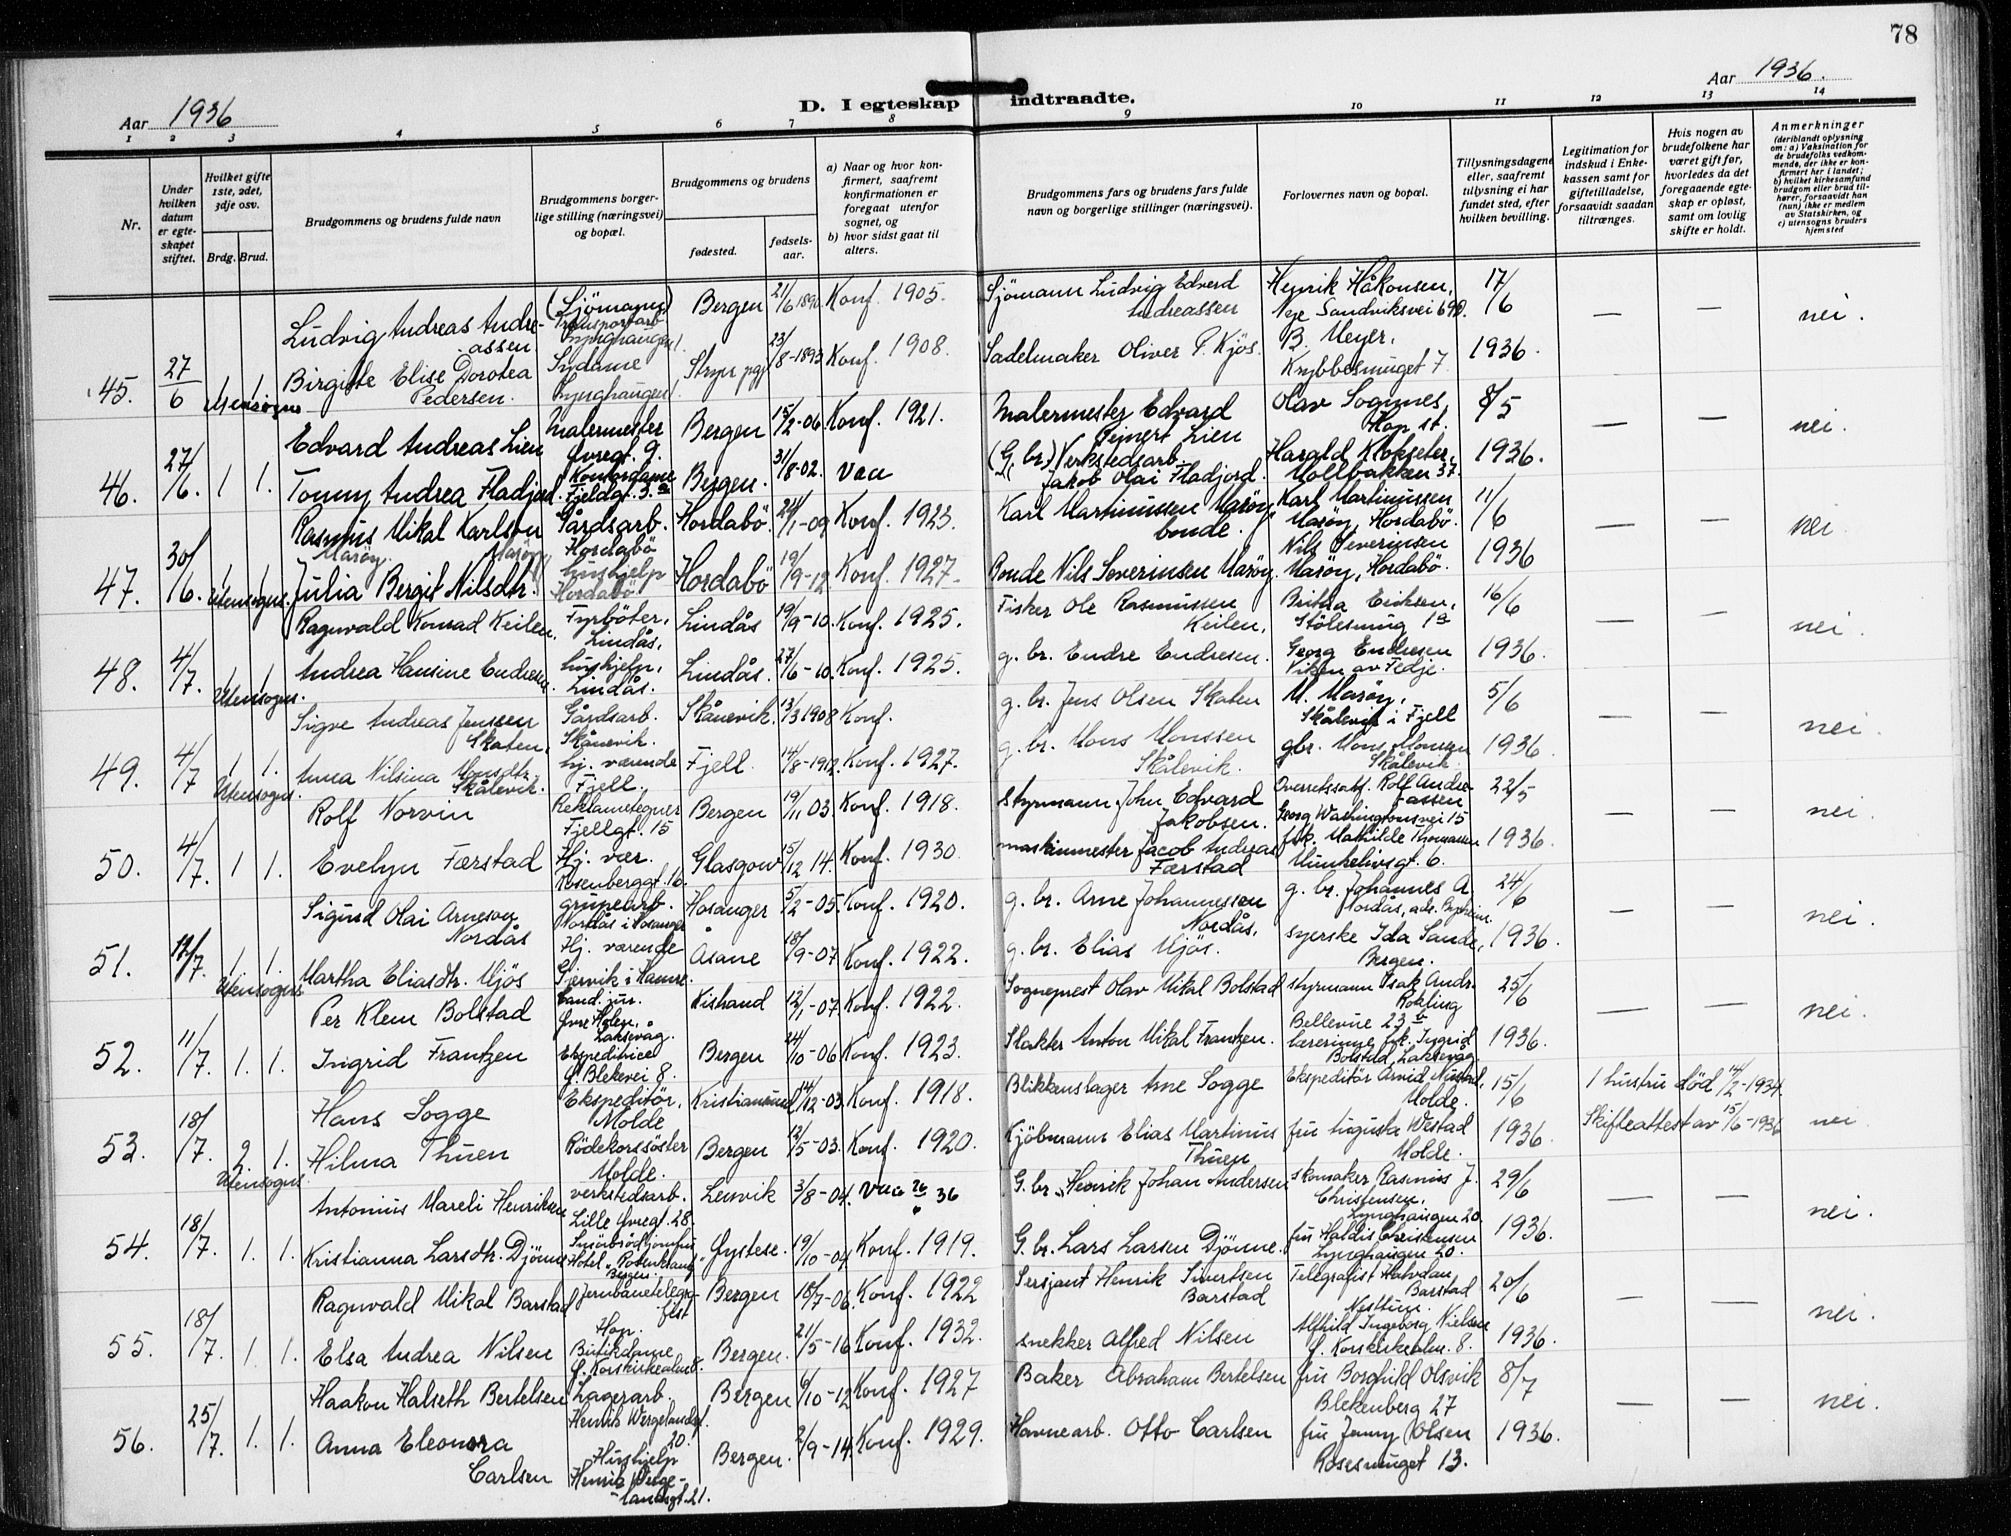 78
Aar 1936
D. I egteskap indtraadte.
Aar 1936.
1 2 3 4 5 6 7 8 9 10 11 12 13 14
Nr.
Under hvilken datum er egteskapet stiftet.
Hvilket gifte 1ste, 2det, 3dje osv.
Brdg. Brud.
Brudgommens og brudens fulde navn
Brudgommens borgerlige stilling (næringsvei) og bopæl.
Brudgommens og brudens
fødested.
fødselsaar.
a) Naar og hvor konfirmert, saafremt konfirmationen er foregaat utenfor sognet, og
b) hvor sidst gaat til alters.
Brudgommens fars og brudens fars fulde navn og borgerlige stillinger (næringsvei).
Forlovernes navn og bopæl.
Tillysningsdagene eller, saafremt tillysning ei har fundet sted, efter hvilken bevilling.
Legitimation for indskud i Enkekassen samt for giftetilladelse, forsaavidt saadan tiltrænges.
Hvis nogen av brudefolkene har været gift før, hvorledes da det foregaaende egteskap er opløst, samt om lovlig skifte er holdt.
Anmerkninger
(deriblandt oplysning om: a) Vaksination for de brudefolks vedkommende, der ikke er konfirmert her i landet; b) hvilket kirkesamfund brudgom eller brud tilhører, forsaavidt han (hun) ikke er medlem av Statskirken, og c) utensogns bruders hjemsted
45. 27/6 1 1. Utensogns
Ludvig Andreas Andreassen. (Sjömann) Transportarb. Lynghaugen Bergen 21/6 1890 Konf. 1905. Sjömann Ludvig Edverd Andreassen Henrik Håkonsen, Nye Sandviksvei 69D. 17/6 — — nei.
Birgitte Elise Dorotea Pedersen. Sydame Lynghaugen Stryn pgj. 23/8-1893 Konf. 1908. Sadelmaker Oliver P. Kjös. B. Meyer, Krybbesmuget 7. 1936.
46. 27/6. 1 1.
Edvard Andreas Lien Malermester Øvregt. 9. Bergen 15/2-06 Konf. 1921. Malermester Edvard Reinert Lien Olav Sognnes, Hop st. 8/5 — — nei.
Tommy Andrea Fladjord Kontordame Fjeldgt. 3.a Bergen. 31/8-02. Vac (G. br.) Verkstedsarb. Jakob Olai Fladjord. Harald Klokseter, Möllbakken 37. 1936.
47. 30/6. 1 1 Utensogns.
Rasmus Mikal Karlson Marøy. Gårdsarb. Hordabö Hordabö 24/1-09 Konf. 1923. Karl Martinussen Marøy, bonde. Karl Martinussen Marøy, Hordabö. 11/6 — — nei
Julia Bergit Nilsdtr. Marøy hushjelp Hordabö Hordabö 19/9-12. Konf. 1927. Bonde Nils Severinsen Marøy. Nils Severinsen Marøy, Hordabö. 1936
48. 4/7. 1 1 Utensogns.
Ragnvald Konrad Keilen. Fyrböter, Lindås. Lindås 19/9-10. Konf. 1925. Fisker Ole Rasmussen Keilen. Eriksen, Stölesmug 1a 16/6 — — nei.
Andrea Hansine Endresen. hushjelp, Lindås. Lindås. 27/6-10. Konf. 1925. g. br. Endre Endresen. Georg Endresen Viken av Fedje. 1936.
49. 4/7 1 1. Utensogns.
Sigve Andreas Jenssen Skaten. Gårdsarb. Skånevik. Skånevik. 13/3 1908 Konf. g. br. Jens Olsen Skaten M. Marøy, Skålevik i Fjell 5/6 — — nei.
Anna Nilsina Monsdtr. Skålevik. hj. værende Fjell. Fjell. 14/8-1912. Konf. 1927. g. br. Mons Monssen Skålevik. gbr. Mons Monssen Skålevik. 1936
50. 4/7. 1 1.
Rolf Norvin Reklametegner Fjellgt. 15 Bergen 19/11 03. Konf. 1918. styrmann John Edvard Jakobsen. Overrettssakf. Rolf Andreassen Georg Washingtonsvei 15 22/5 — — nei.
Evelyn Færstad Hj. vær. Rosenberggt. 16. Glasgow 15/12 14. Konf. 1930. maskinmester Jacob Andreas Færstad frk. Mathilde Thomassen Munkelivsgt. 6. 1936.
51. 11/7. 1 1. Utensogns
Sigurd Olai Arneson Nordås grubearb. Nordås i Hosanger Hosanger 5/2-05. Konf. 1920. g. br. Arne Johannessen Nordås, g. br. Johannes A. Nordås, 24/6 — — nei.
Martha Eliasdtr. Mjös Hj. værende Gjervik i Hamre. Åsane 18/9-07 Konf. 1922. g. br. Elias Mjös. syerske Ida Sande, Bergen. 1936.
52. 11/7. 1. 1.
Per Klem Bolstad Cand. jur. Øvre Holen, Laksevåg. Kistrand 12/1-07 Konf. 1922. Sogneprest Olav Mikal Bolstad styrmann Isak Andr. Bellevue 23 b 25/6 — — nei.
Ingrid Frantzen Ekspeditrice Ø. Blekevei 8. Bergen 24/10-06 Konf. 1923. Slakter Anton Mikal Frantzen. lærerinne frk. Ingrid Bolstad, Laksevåg 1936.
53. 18/7. 2. 1. Utensogns
Hans Sogge Ekspeditör, Molde Kristiansund 14/12-03. Konf. 1918. Blikkenslager Arne Sogge Ekspeditör Arvid Molde. 15/6 1 hustru död 14/2-1934. Skifteattest av 15/6-1936 nei
Hilma Thuen Rödekorssöster Molde. Bergen 12/5-03. Konf. 1920. Kjöbmann Elias Martinus Thuen fru Augusta Westad Molde. 1936.
54. 18/7. 1. 1.
Antonius Mareli Henriksen verkstedsarb. Lille Øvregt. 28. Lervik 3/8-04. Vac 36 G. br. Henrik Johan Andersen skomaker Rasmus J. Christensen, Lynghaugen 20. 29/6 — — nei.
Kristianna Larsdtr. Djönne Smörbrödjomfru Hotel „Rosenkrantz" Bergen. Øystese. 19/10-04 Konf. 1919. G. br. Lars Larsen Djönne. fru Haldis Christensen Lynghaugen 20. 1936.
55. 18/7. 1. 1.
Ragnvald Mikal Barstad Jernbanetelegrafist Hop. Bergen 18/7-06. Konf. 1922 Sersjant Henrik Sivertsen Barstad Telegrafist Halvdan Barstad Nesttun. 20/6 — — nei.
Elsa Andrea Nilsen Butikdame Ø. Korskirkealm. Bergen. 21/5-16 Konf. 1932. snekker Alfred Nilsen Alfhild Ingeborg Nielsen Ø. Korskirkealm. 8. 1936.
56. 25/7. 1. 1.
Haakon Halseth Bertelsen Lagerarb. Henrik Wergelandsgt. 20. Bergen 6/10-12 Konf. 1927 Baker Abraham Bertelsen fru Borghild Olsvik Blekenberg 27 8/7 — — nei.
Anna Eleonora Carlsen Hushjelp Henrik Wergelandsgt. 21. Bergen. 2/9-14 Konf. 1929. Havnearb. Otto Carlsen fru Jenny Olsen Rosesmuget 13. 1936.